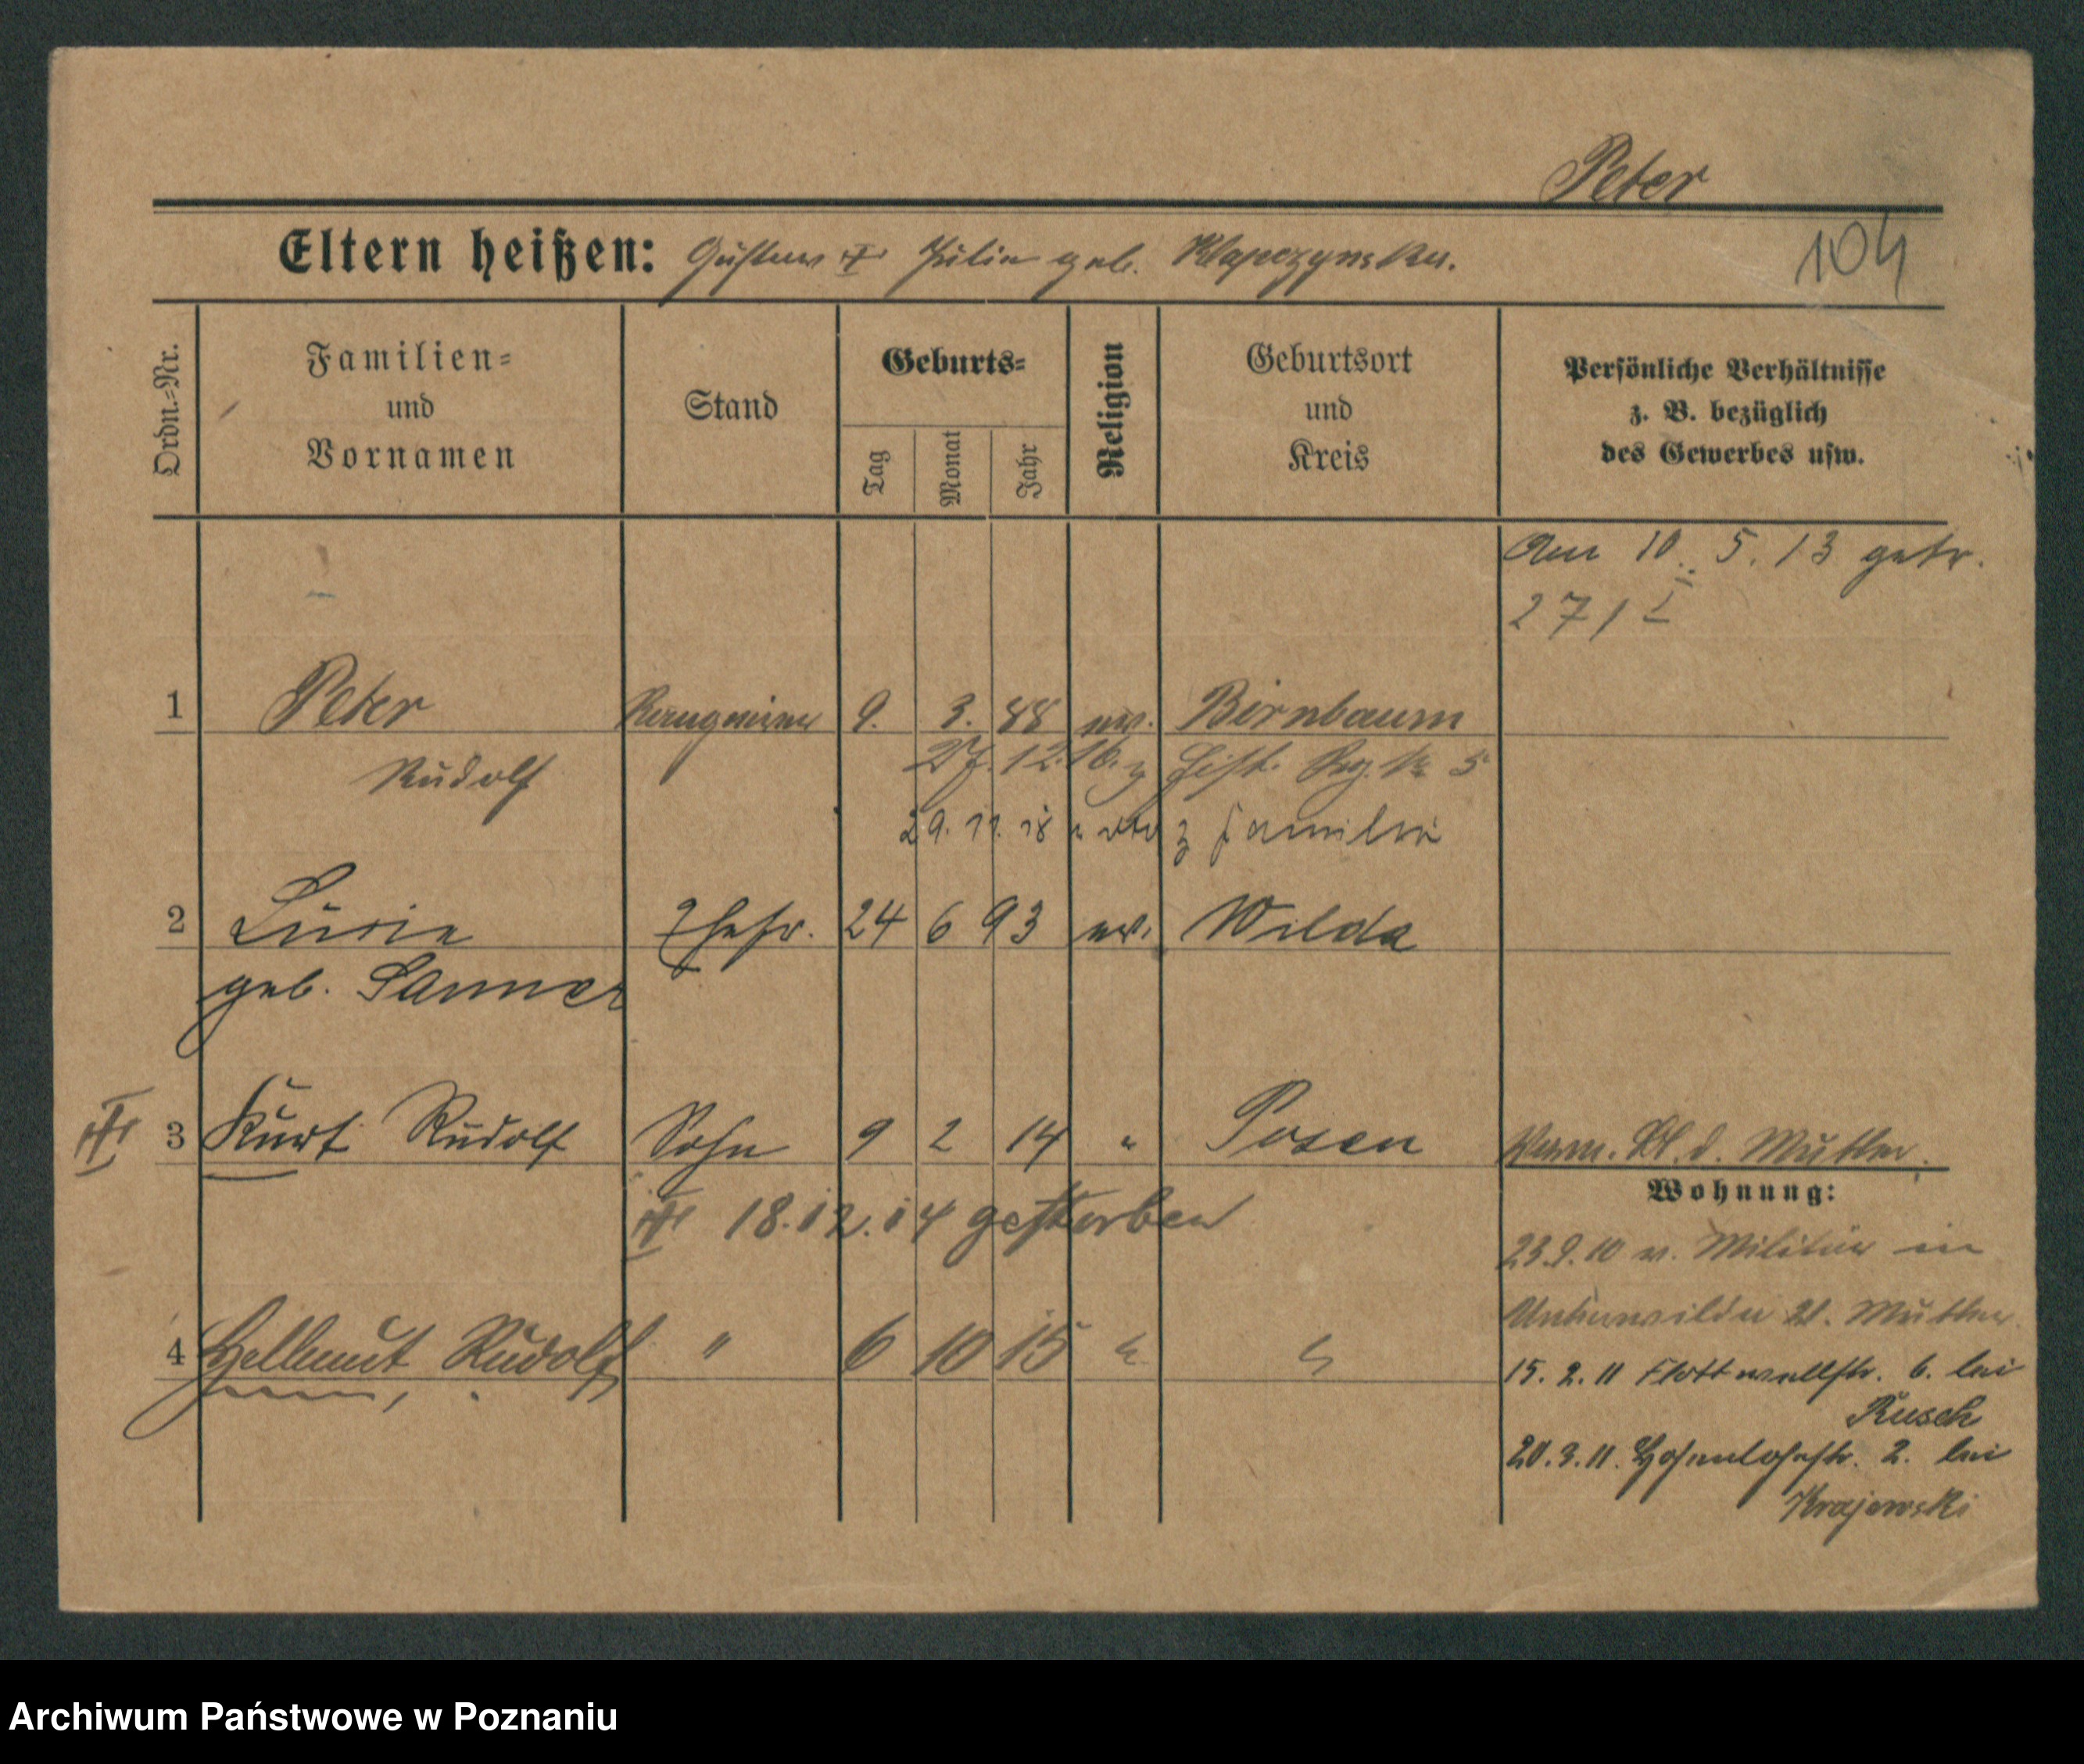 Peter
104
Eltern heißen: Gustav ✝ Julia geb. Klapczynska.
Ordn.-Nr.
Familien-
und
Vornamen
Stand
Geburts-
Tag
Monat
Jahr
Religion
Geburtsort
und
Kreis
Persönliche Verhältnisse
z. B. bezüglich
des Gewerbes usw.
Am 10. 5. 13 getr.
271
1 Peter 9. 3. 88 ev. Birnbaum
Rudolf 27. 12. 16. z 5
29. 11. 18 z Familie
2 Luzie Ehefr. 24 6 93 ev. Wilda
geb. Sanner
3 Kurt Rudolf Sohn 9 2 14 " Posen d. Mutter.
18.12.14 gestorben
Wohnung:
23.9.10 v. Militär in
Unterwilda 21. Mutter
4 Hellmut Rudolf " 6 10 15 " "
15. 2. 11 Flottwellstr. 6. bei
Rusch
20. 3. 11. Hohenlohestr. 2. bei
Krajewski
Archiwum Państwowe w Poznaniu